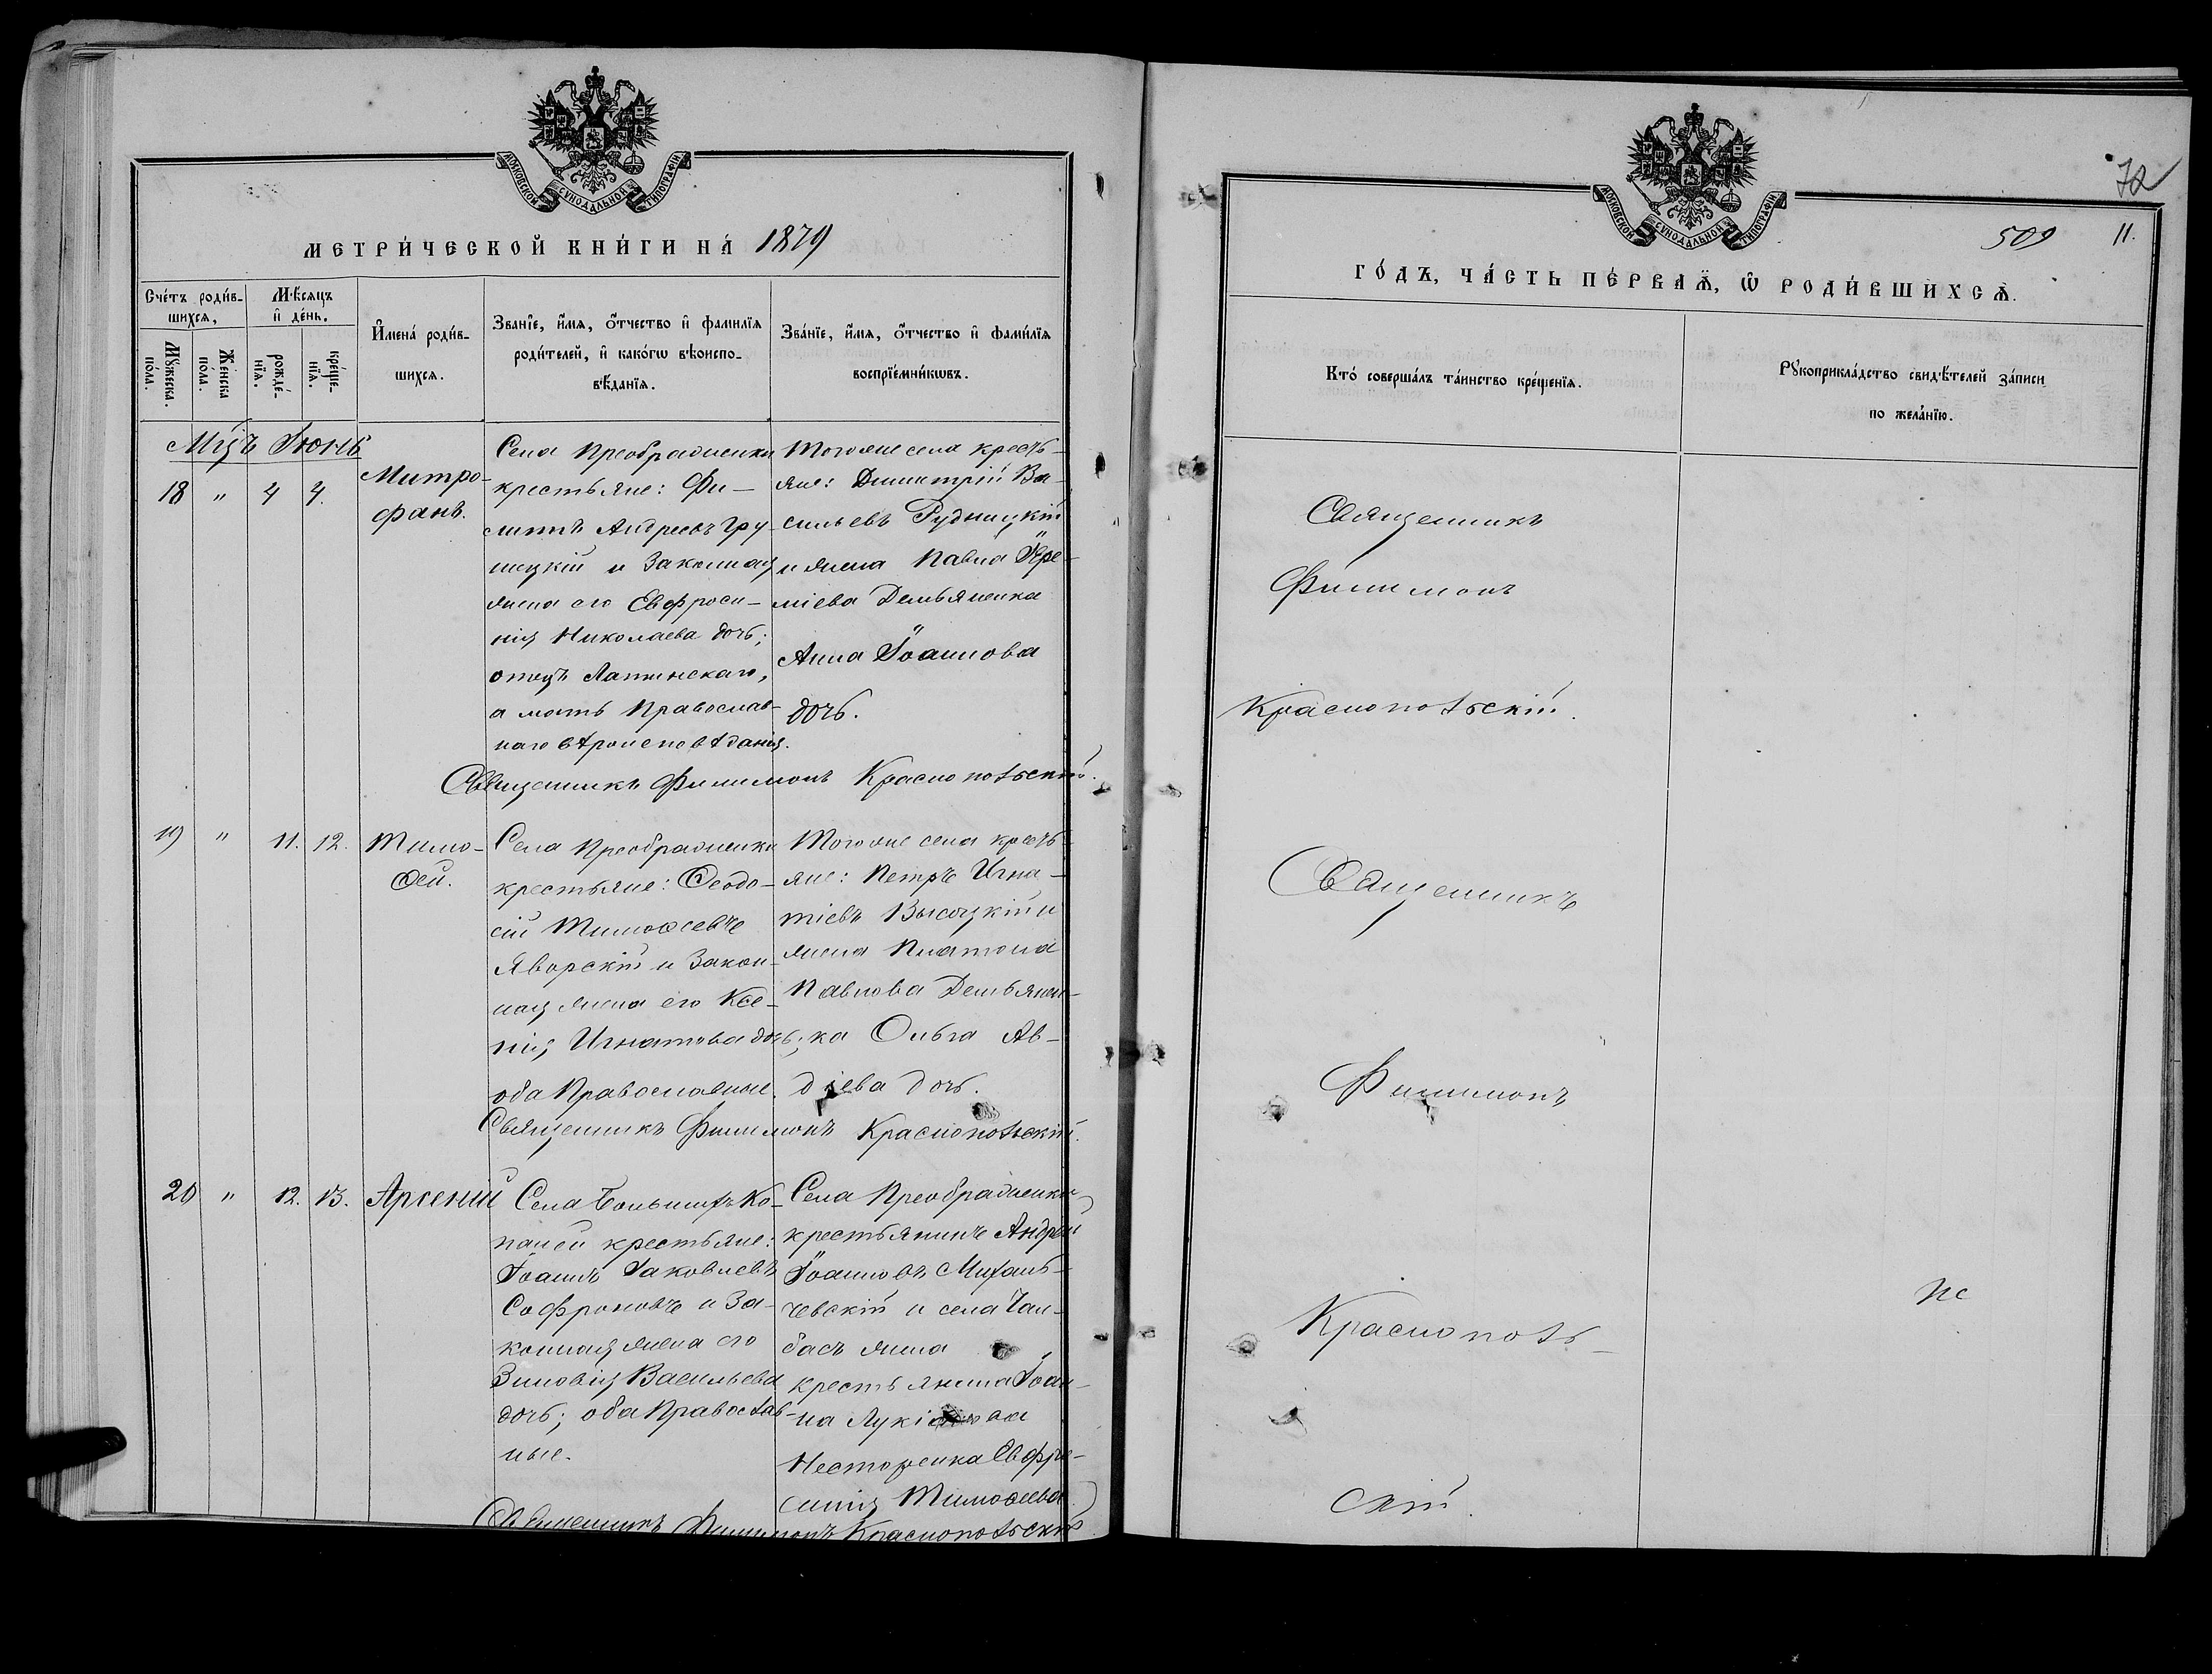 МОСКОВСКОЙ СѴНОДАЛЬНОЙ ТИПОГРАФІИ
МЕТРИ́ЧЕСКОЙ КНИ́ГИ НА̀ 1879
Сче́тъ роди́в-
шихся,
Мѣ́сяцъ
и҆ де́нь.
Мꙋ́жеска
по́ла.
Же́нска
по́ла.
рожде́-
нїя.
креще-
нїя.
И҆мена̀ роди́в-
шихся.
Зва́нїе, и҆́мя, ѻ҆́тчество и҆ фами́лїя
роди́телей, и҆ како́гѡ вѣроиспо-
вѣ́данїя.
Зва́нїе, и҆́мя, ѻ҆́тчество и҆ фами́лїя
воспрїе́мникѡвъ.
Мцъ Іюнь
18 " 4 4.
Митро-
фанъ.
Села Преображенки
крестьяне: Фи-
липъ Андреевъ Гру-
шецкій и законная
жена его Евфроси-
нія Николаева дочь;
отецъ Латинскаго,
а мать Православ-
наго вѣроисповѣданія.
Тогоже села кресть-
яне: Димитрій Ва-
сильевъ Рудницкій
и жена Павла Іере-
міева Демьяненка
Анна Іоаннова
дочь.
Священникъ Филимонъ Краснопольскій.
19 " 11. 12.
Тимо-
ѳей.
Села Преображенки
крестьяне: Ѳеодо-
сій Тимоѳеевъ
Яворскій и закон-
ная жена его Ксе-
нія Игнатова дочь;
оба Православные.
Тогоже села кресть-
яне: Петръ Игна-
тіевъ Высоцкій и
жена Платона
Павлова Демьянен-
ка Ольга Ав-
діева дочь.
Священникъ Филимонъ Краснопольскій.
20 " 12. 13.
Арсеній
Села Большихъ Ко-
паней крестьяне:
Іоаннъ Іаковлевъ
Софроновъ и за-
конная жена его
Зиновія Васильева
дочь; оба Православ-
ные.
Села Преображенки
крестьянинъ Андрей
Іоанновъ Михаль-
чевскій и села Чал-
басъ жена
крестьянина Іоан-
на
Несторенка Евфро-
синія Тимоѳеева
Священникъ Филимонъ Краснопольскій
МОСКОВСКОЙ СѴНОДАЛЬНОЙ ТИПОГРАФІИ
72
509 11.
ГО́ДЪ, ЧА́СТЬ ПЕ́РВАЯ, Ѡ҆ РОДИ́ВШИХСЯ.
Кто̀ соверша́лъ та́инство креще́нїя.
Рꙋкоприкла́дство свидѣ́телей за́писи
по жела́нїю.
Священникъ
Филимонъ
Краснопольскій.
Священникъ
Филимонъ
Краснополь-
скій.